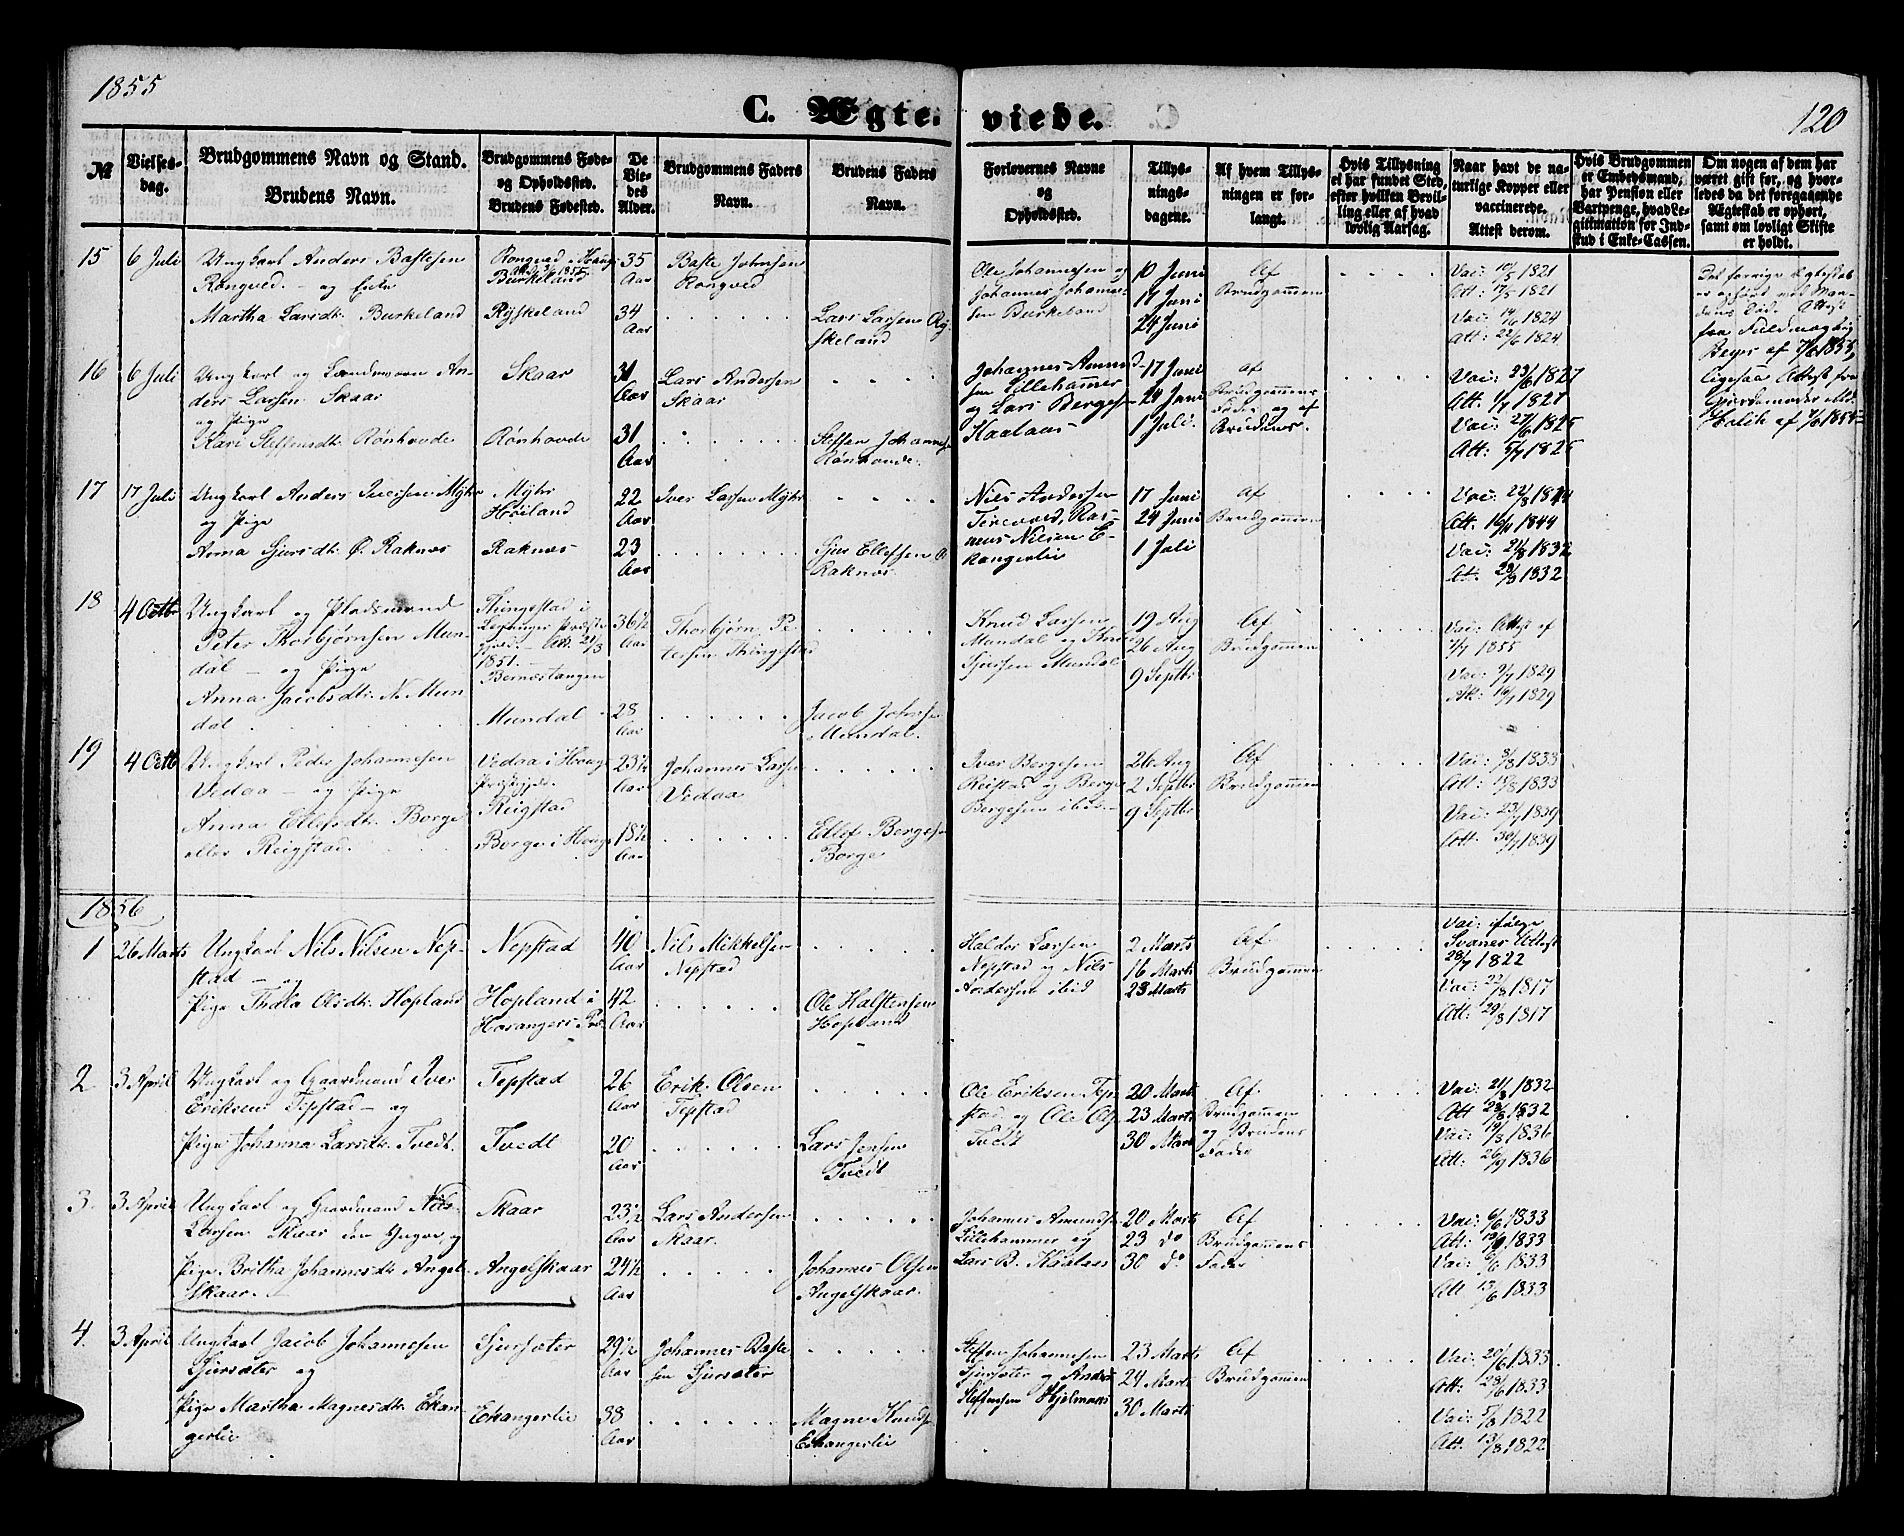 1855
120
C. Ægte-
viede.
№
Vielses-
dag.
Brudgommens Navn og Stand.
Brudens Navn.
Brudgommens Føde-
og Opholdssted.
Brudens Fødested.
De
Vie-
des
Alder.
Brudgommens Faders
Navn.
Brudens Faders
Navn.
Forlovernes Navne
og
Opholdssted.
Tillys-
nings-
dagene.
Af hvem Tillys-
ningen er for-
langt.
Hvis Tillysning
ei har fundet Sted,
efter hvilken Bevil-
ling eller af hvad
lovlig Aarsag.
Naar havt de na-
turlige Kopper eller
vaccinerede.
Attest derom.
Hvis Brudgommen
er Embedsmand,
har Pension eller
Vartpenge, hvad Le-
gitimation for Ind-
skud i Enke-Cassen.
Om nogen af dem har
været gift før, og hvor-
ledes da det foregaaende
Ægteskab er ophørt,
samt om lovligt Skifte
er holdt.
15
6 Juli
Ungkarl Anders Bastesen
Rongved. - og Enke
Martha Larsdtr. Burkeland
Rongved i Hougs
Burkeland
Ryskeland
35
Aar
34
Aar
Baste Johnsen
Rongved
Lars Larsen Ry-
skeland
Ole Johannesen og
Johannes Johanne-
sen Burkeland
10 Juni
17 Juni
24 Juni
Af
Brudgommen
Vac: 10/5 1821
Att: 17/5 1821
Vac: 14/6 1824
Att: 22/6 1824
Det forrige Ægteskab
er ophørt ved Man-
dens Død. Attest
fra Fuldmægtig
Beyer af 7/6 1855,
ligesaa Attest fra
16
6 Juli
Ungkarl og Landmann An-
ders Larsen Skaar
og Pige
Kari Steffensdtr. Rønhovde
Skaar
Rønhovde
31
Aar
31
Aar
Lars Andersen
Skaar
Steffen Johannes-
Rønhovde.
Johannes Amund-
sen Lillehammer
og Lars Bergesen
Kaalaas
17 Juni
24 Juni
1 Juli.
af
Brudgommens
Fader og af
Brudens
Vac: 23/6 1827
Att: 1/7 1827
Vac: 27/6 1825
Att: 5/7 1825
17
17 Juli
Ungkarl Anders Iversen Myhr
og Pige
Anna Sjursdtr. Ø. Raknes
Myhr
Høiland
Raknes
22
Aar
23
Aar
Iver Larsen Myhr
Sjur Ellefsen Ø
Raknes.
Nils Andersen
17 Juni
24 Juni
1 Juli
Af
Brudgommen
Att. 16/11 1844
Vac: 21/8 1832
Att. 28/8 1832
18
4 Octbr
Ungkarl og Pladsmand
Peter Thorbjørnsen Mun-
dal - og Pige
Anna Jacobsdtr. N. Mun-
dal
Thingstad i
Leganger Præste-
gjeld. - Att. 21/3
1851. -
Bernestangen
Mundal
36 1/2
Aar
28
Aar
Thorbjørn Pe-
tersen Thingstad
Jacob Johnsen
Mundal.
Knud Larsen
Mundal og Knud
Sjursen Mundal
19 Aug
26 Aug
9 Septbr
Af
Brudgommen
Vac: Attest af
2/7 1855
Vac: 9/7 1829
Att: 16/7 1829
19
4 Octbr
Ungkarl Peder Johannesen
Vedaa - og Pige
Anna Ellefsdtr. Borge
eller Reigstad.
Vedaa i Hougs
Præstegjeld.
Reigstad
Borge i Hougs
23 1/2
Aar
18 1/2
Aar
Johannes Larsen
Vedaa
Ellef Bergesen
Borge
Iver Bergesen
Reistad og Berge
Bergesen ibid.
26 Aug
2 Septbr
9 Septbr
Af
Brudgommen
Vac: 8/8 1833
Att: 15/8 1833
Vac: 23/7 1839
Att. 30/7 1839
1856
1
26 Marts
Ungkarl Nils Nilsen Nep-
stad - og
Pige Thala Olsdtr. Hopland
Nepstad
Hopland i
Hosangers Præ
40
Aar
42
Aar
Nils Mikkelsen
Nepstad
Ole Halstensen
Hopland
Haldor Larsen
Nepstad og Nils
Andersen ibid
2 Marts
16 Marts
23 Marts
Af
Brudgommen
Vac: ifølge
Svanes Attest
28/7 1822
Vac: 22/8 1817
Att: 29/8 1817
2
3 April
Ungkarl og Gaardmand Iver
Eriksen Tepstad - og
Pige Johanna Larsdtr. Tvedt.
Tepstad
Tvedt
26
Aar
20
Aar
Erik Olsen
Tepstad
Lars Jensen
Tvedt
Ole Eriksen Tep-
stad og Ole Ols.
Tvedt
20 Marts
23 Marts
30 Marts
Af
Brudgommen
og Brudens
Fader
Vac: 21/8 1832
Att 28/8 1832
Vac: 19/8 1836
Att: 26/9 1836
3.
3 April
Ungkarl og Gaardmand Nils
Larsen Skaar den Yngre, og
Pige Britha Johannesdtr. Angel-
skaar.
Skaar
Angelskaar
23 1/2
Aar
24 1/2
Aar
Lars Andersen
Skaar.
Johannes Olsen
Angelskaar.
Johannes Amundsen
Lillehammer og
Lars B. Kaalaas
20 Marts
23 do
30 do
Af
Brudgommens
Fader
Vac: 6/6 1833
Att: 13/6 1833
Vac: 6/6 1833
Att 13/6 1833
4.
3 April
Ungkarl Jacob Johannesen
Sjursæter og
Pige Martha Magnesdtr. Eikan-
gerlie
Sjursæter
Eikangerlie
29 1/2
Aar
38
Aar
Johannes Baste-
sen Sjursæter
Magne Knuds.
Eikangerlie
Steffen Johannesen
Sjursæter og Anders
Steffensen Hjelmaas
23 Marts
24 Marts
30 Marts
Af
Brudgommen
Vac: 20/6 1833.
Att: 28/6 1833
Vac: 5/8 1822
Att. 13/8 1822